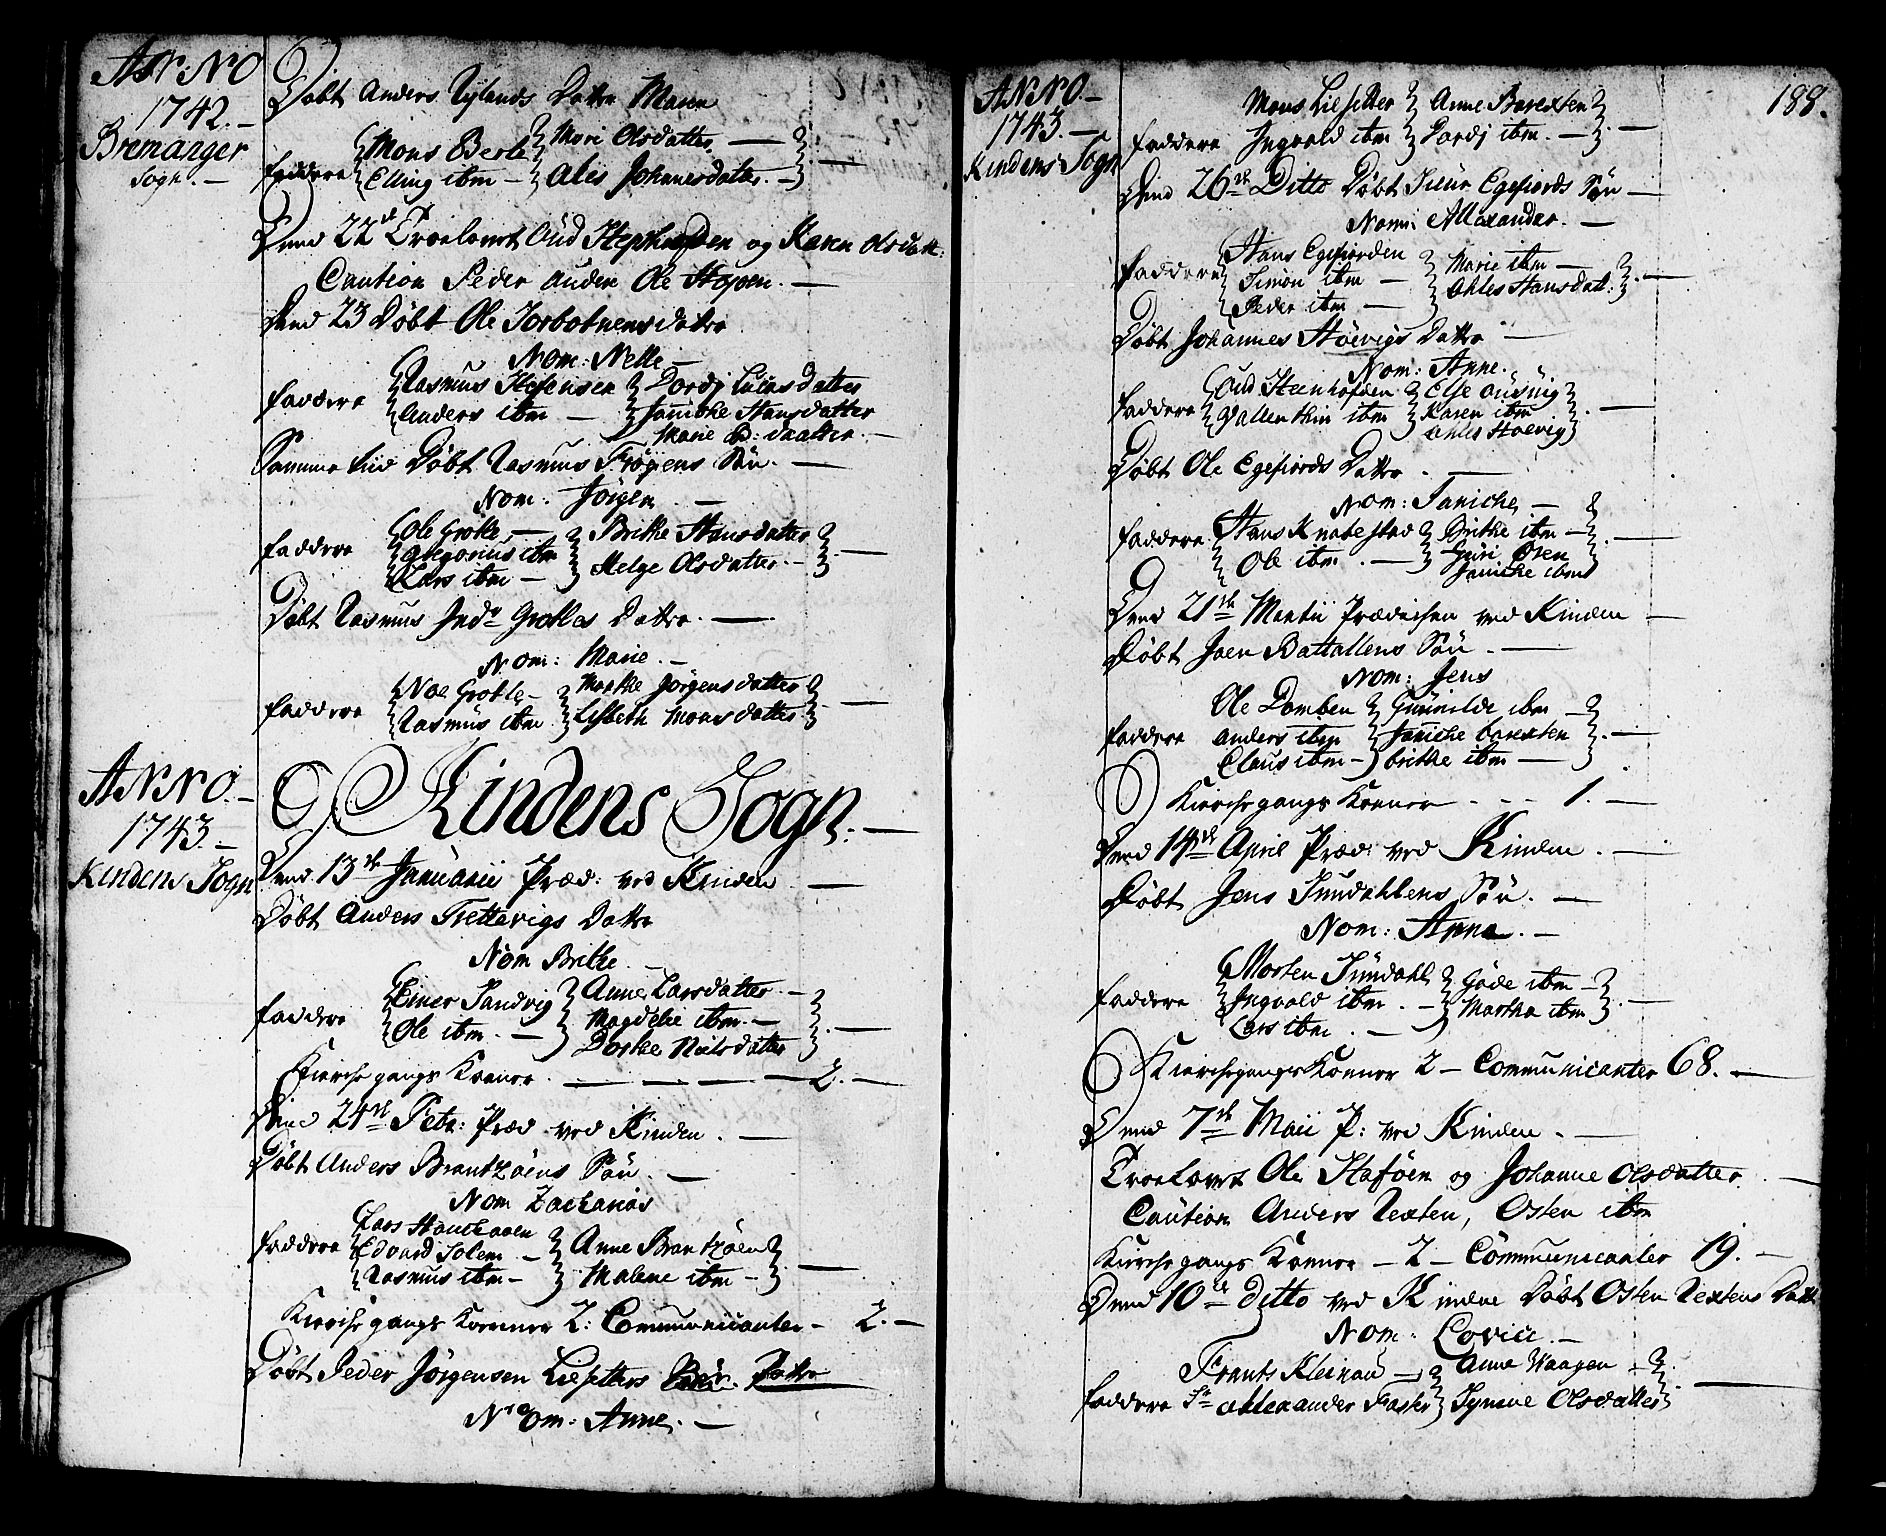 ANNO
1742.
Bremanger
Sogn.
Döbt Anders Rylands Dotter Maren
faddere Mons Berle Mari Olsdatter
Elling ibm Alis Johannesdatter
Dend 22 Troelovet Oud og Karen Olsdatt:
Caution Peder Anden Ole Hopen.
Dend 23 Döbt Ole Dotter
Nom: Nelle
faddere Rasmus Dordj datter
Anders ibm Jannicke Hansdatter
Marie daatter
Samme tiid Döbt Rasmus Fröÿens Sön.
Nom: Jörgen
faddere Ole Grotle, Brithe Hansdatter
Gregorius ibm Helge Olsdatter
Lars ibm
Döbt Rasmus Grotles Dotter.
Nom: Marie.
faddere Noe Grotle Marthe Jörgensdatter
Rasmus ibm Lisbeth Monsdatter
ANNO.
1743.
Kindens Sogn
Kindens Sogn.
Dend 13de Januarii Præd: ved Kinden
Döbt Anders Trettevigs Dotter
Nom Brithe.
faddere Einer Sandvig Anne Larsdatter
Ole ibm Magdele ibm
Dorthe Nielsdatter
Kierche gangs Konner 2.
Dend 24de Febr: Præd ved Kinden.
Döbt Anders Brantzöens Sön.
Nom Zacharias
faddere Lars
Edvard Solem Anne Brantzöen
Rasmus ibm Malene ibm
Kierche gangs Konner 2: Communicanter 2.
Döbt Peder Jörgensen Liesetters Dotter
Nom: Anne.
ANNO
1743.
Kindens Sogn
188.
Mons Liesetter Anne Barexten
faddere Ingvald ibm Dordj ibm.
Dend 26de Ditto Döbt Egefiords Sön
Nom: Allexander.
faddere Hans Egefiorden Marie ibm
Simon ibm Ahles Hansdatt:
Peder ibm
Döbt Johannes Stöevigs Dotter
Nom: Anne.
faddere Oud Else
Vallenthin ibm Karen ibm
Ahles Stoevig
Döbt Ole Egefiords Dotter.
Nom: Janiche
faddere Hans Knabestad Brithe ibm
Ole ibm. Guri Osen
Janiche ibm
Dend 21de Martii Prædichen ved Kinden
Döbt Joen Battallens Sön.
Nom: Jens
Ole Domben Gunnilde ibm
faddere Anders ibm Janniche barexten
Claus ibm brithe ibm
Kierche gangs Konner 1.
Dend 14de April Præd: ved Kinden.
Döbt Jens Sundahlens Sön.
Nom: Anne.
Morten Sundahl Göde ibm
faddere Ingvald ibm. Martha ibm
Lars ibm.
Kierchegangs Konner 2 Communicanter 68.
Dend 7de Maii P: ved Kinden.
Troelovet Ole Staföen og Johanne Olsdatter.
Caution Anders Rexten, Osten ibm
Kierche gangs Konner 2 Communicanter 19.
Dend 10de ditto ved Kinden Döbt Osten Rextens Dott
Nom: Lovise.
Frants Kleinau Anne Waagen
faddere Sr Allexander Synneve Olsdatter